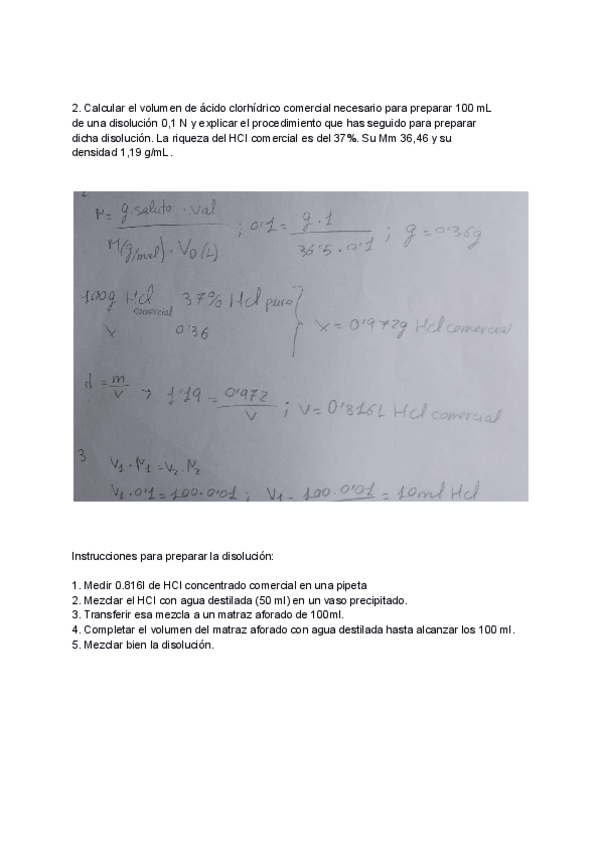 2. Calcular el volumen de ácido clorhídrico comercial necesario para preparar 100 mL
de una disolución 0,1 N y explicar el procedimiento que has seguido para preparar
dicha disolución. La riqueza del HCl comercial es del 37%. Su Mm 36,46 y su
densidad 1,19 g/mL.
N = g.soluto · val / M(g/mol) · VD(L) ; 0'1 = g · 1 / 36'5 · 0'1 ; g = 0'36g
100g HCl comercial 37% HCl puro
x 0'36 } x = 0'972g HCl comercial
d = m/v → 1'19 = 0'972 / V ; V = 0'816L HCl comercial
3 V1 · N1 = V2 · N2
V1 · 0'1 = 100 · 0'01 ; V1 = 100 · 0'01 = 10ml HCl
Instrucciones para preparar la disolución:
1. Medir 0.816l de HCl concentrado comercial en una pipeta
2. Mezclar el HCl con agua destilada (50 ml) en un vaso precipitado.
3. Transferir esa mezcla a un matraz aforado de 100ml.
4. Completar el volumen del matraz aforado con agua destilada hasta alcanzar los 100 ml.
5. Mezclar bien la disolución.